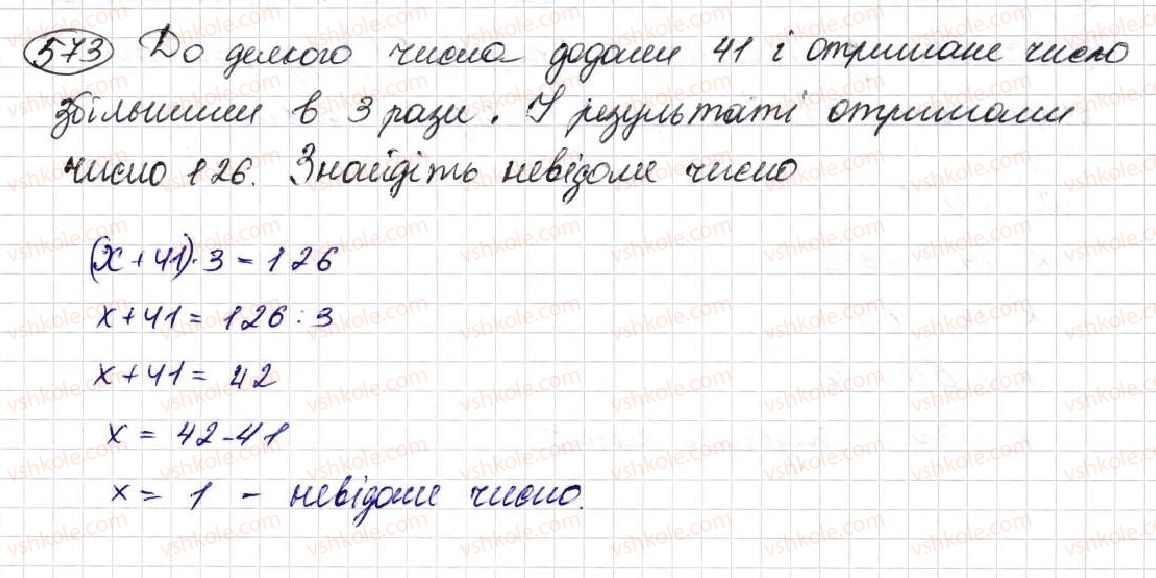 573 До деякого числа додали 41 і отримане число
збільшили в 3 рази. У результаті отримали
число 126. Знайдіть невідоме число
(x + 41) · 3 = 126
x + 41 = 126 : 3
x + 41 = 42
x = 42 - 41
x = 1 - невідоме число.